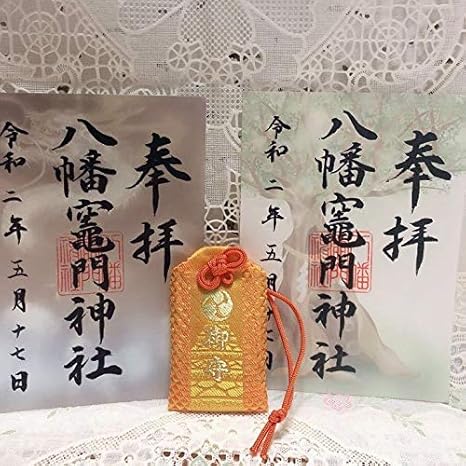 奉拝
八幡竈門神社
令和二年五月十七日
奉拝
八幡竈門神社
令和二年五月十七日
御守